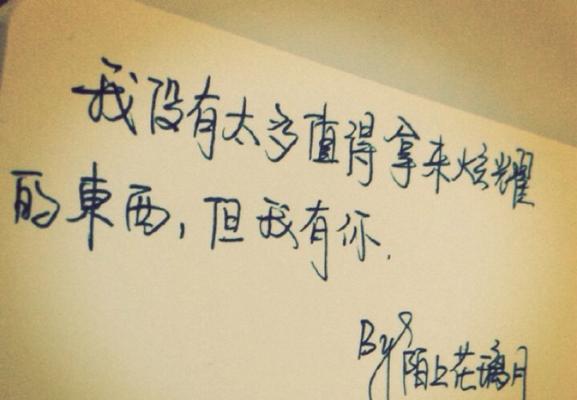 我没有太多值得拿来炫耀
的東西，但我有你.
By 陌上花璃月